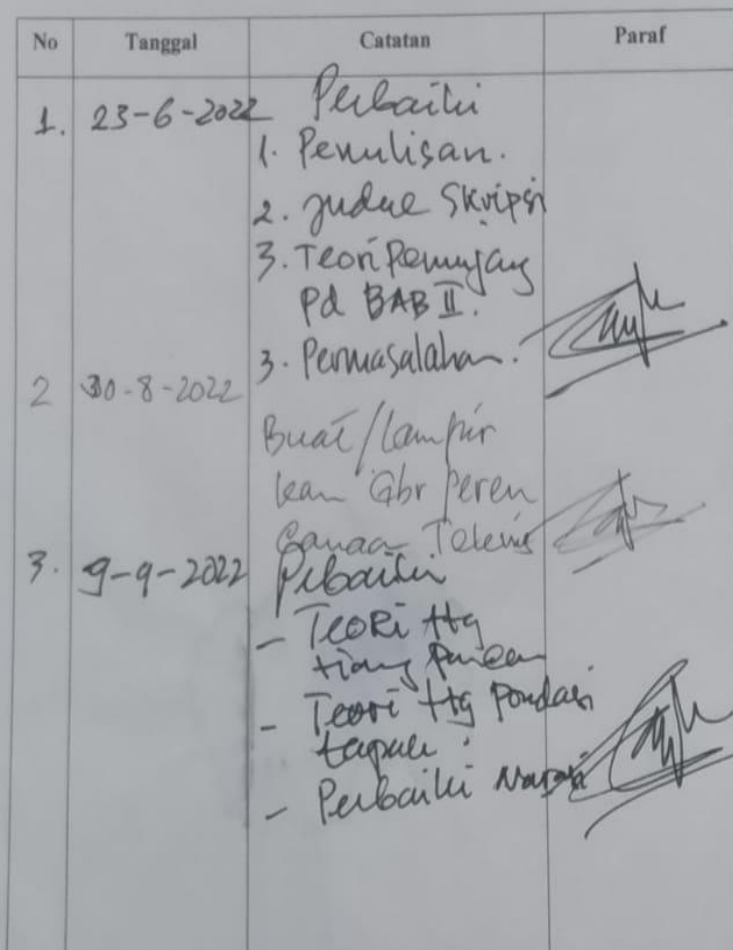 No Tanggal Catatan Paraf
1. 23-6-2022 Perbaiki
1. Penulisan.
2. Judul Skripsi
3. Teori Penunjang
Pd BAB II.
3. Permasalahan.
2 30-8-2022
Buat/lampir
kan Gbr Peren
canaan Teknis
3. 9-9-2022 Perbaiki
- Teori ttg
tiang Pancang
- Teori ttg Pondasi
tapak.
- Perbaiki Narasi